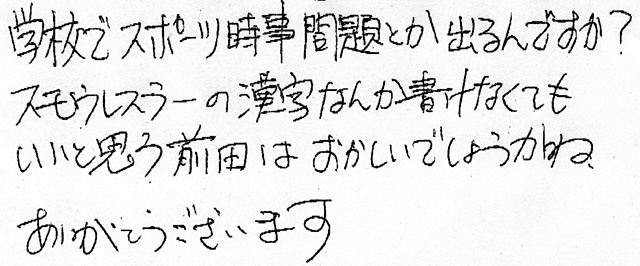 学校でスポーツ時事問題とか出るんですか?
スモウレスラーの漢字なんか書けなくても
いいと思う前田はおかしいでしょうかね、
ありがとうございます